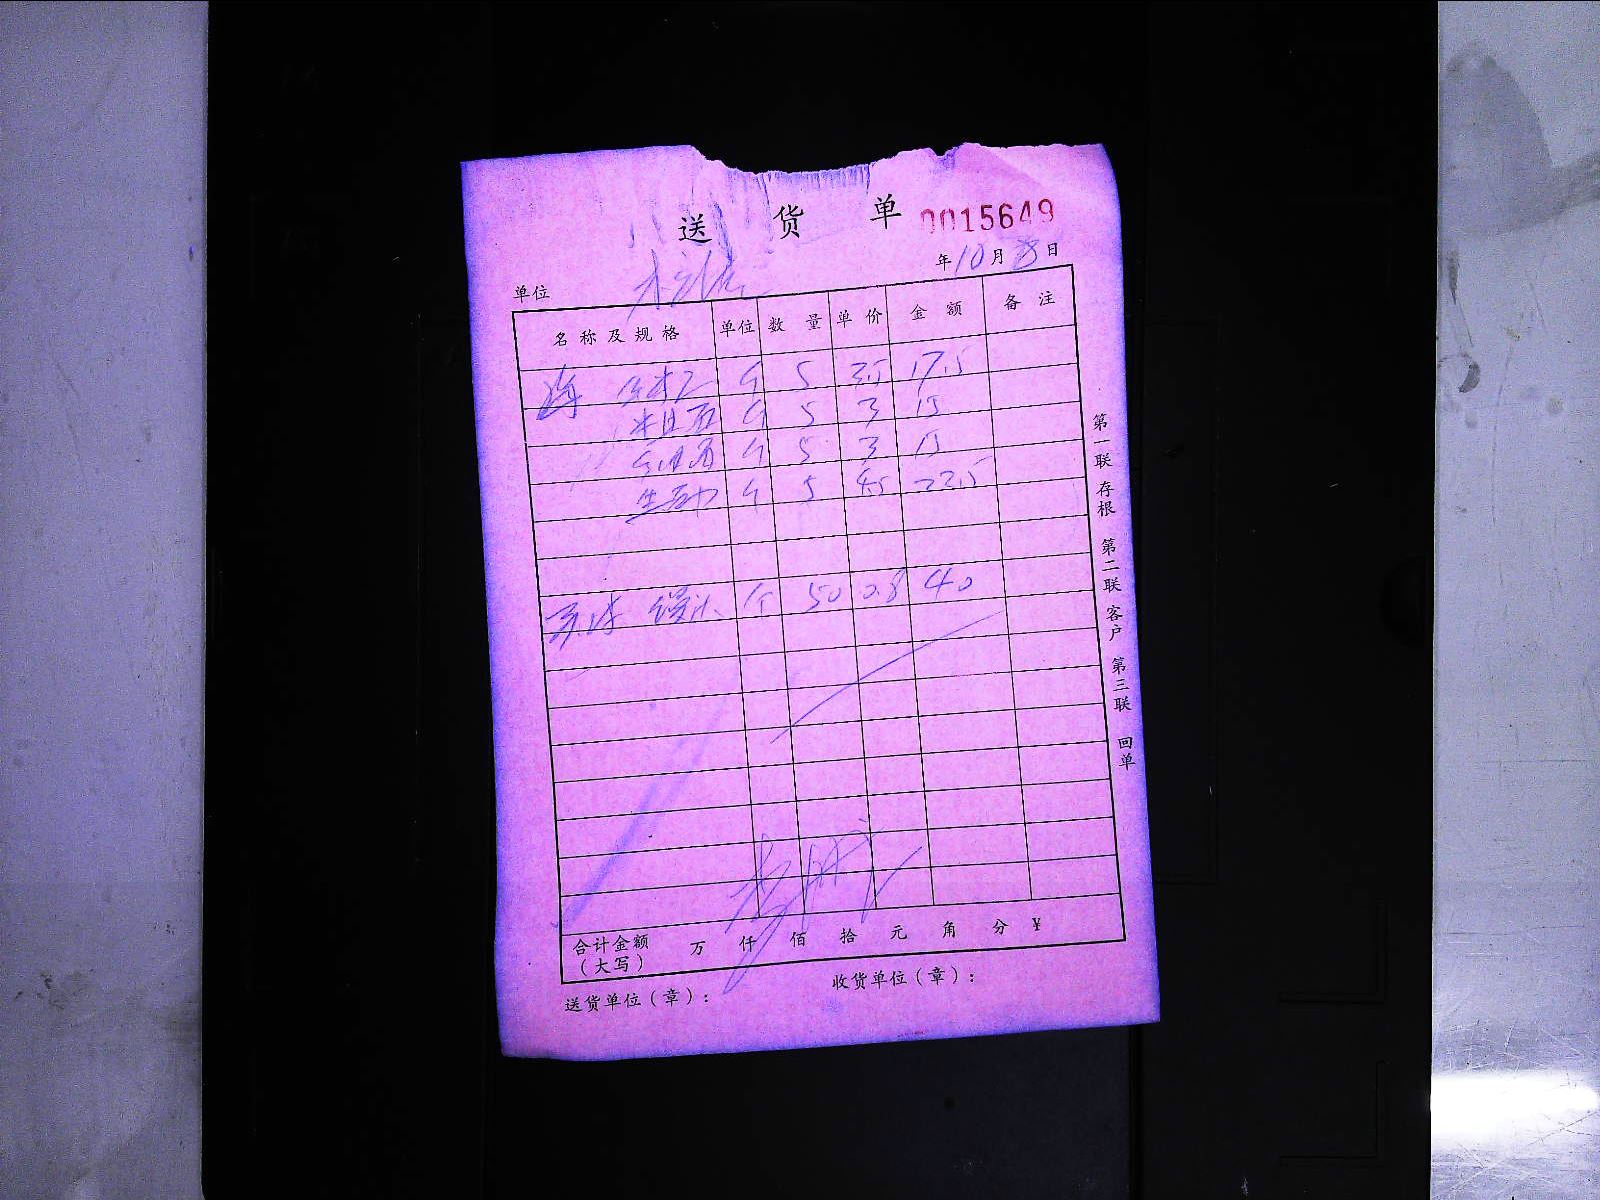 送货单 0015649
年10月8日
单位
名称及规格 单位 数量 单价 金额 备注
个 5 3.5 17.5
个 5 3 15
个 5 3 15
个 5 4.5 22.5
馒头 个 50 0.8 40
合计金额(大写) 万 仟 佰 拾 元 角 分 ¥
送货单位(章): 收货单位(章):
第一联存根 第二联客户 第三联回单